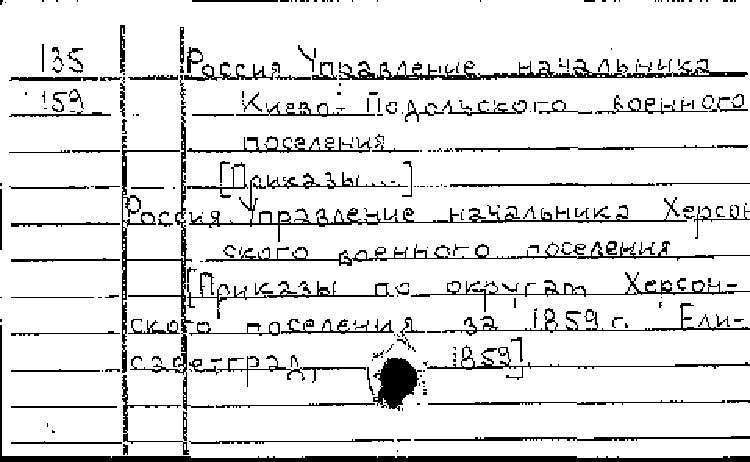 135 Россия Управление начальника
159 Киево-Подольского военного
поселения
[Приказы...]
Россия Управление начальника Херсон
ского военного поселения
[Приказы по округам Херсон-
ского поселения за 1859 г. Ели-
саветград, 1859]